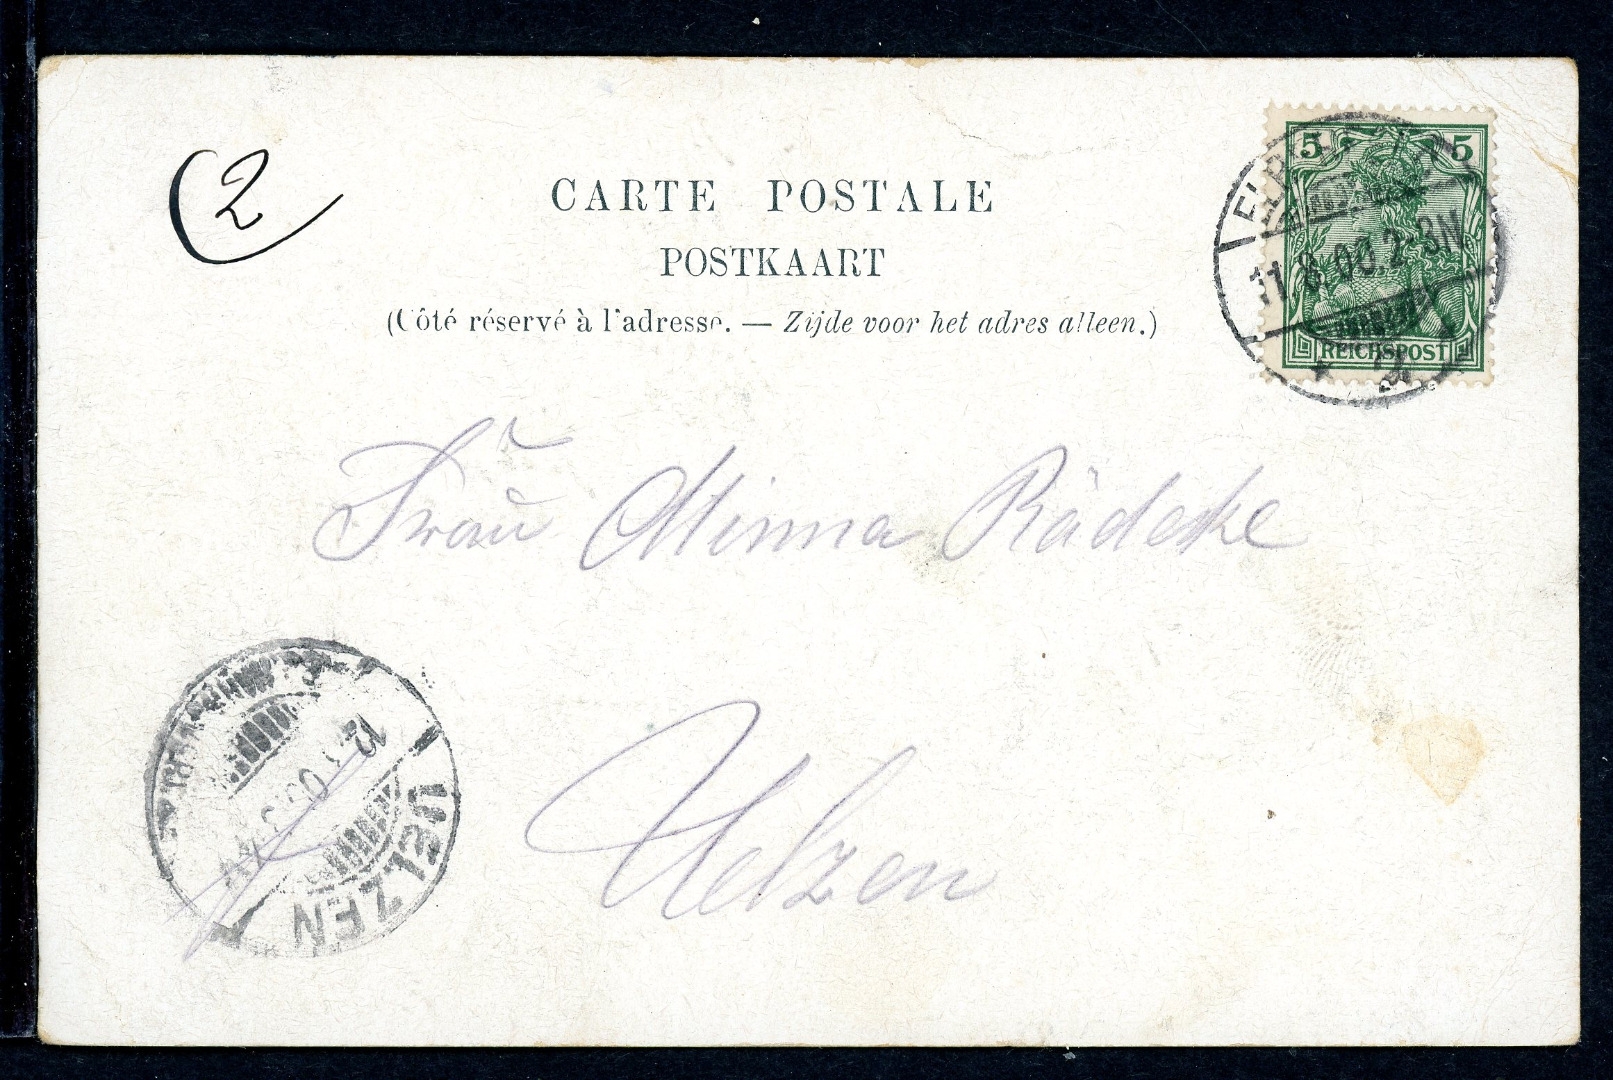 2
CARTE POSTALE
POSTKAART
(Côté réservé à l'adresse. — Zijde voor het adres alleen.)
5 5
11.8.00.2-3N
REICHSPOST
Frau Minna Rädeke
Uelzen
12.
UELZEN